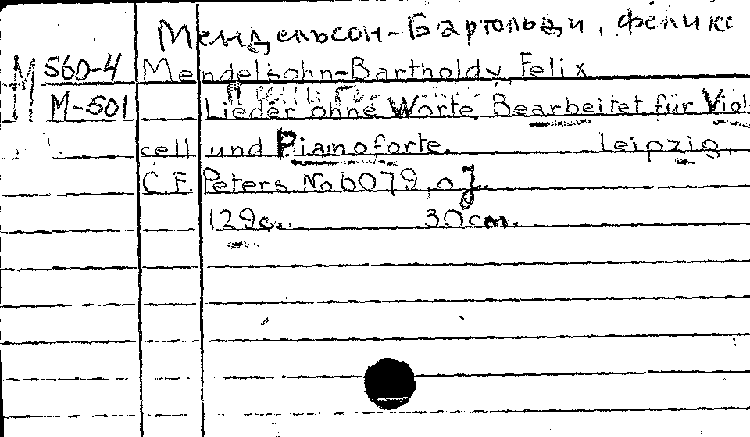 Мендельсон-Бартольди, Феликс
М 560-4 Mendelsohn-Bartholdy, Felix
М-501 Lieder ohne Worte. Bearbeitet für Viol
cell und Pianoforte. Leipzig,
C.F. Peters. No 6079, o.J.
129c. 30cm.